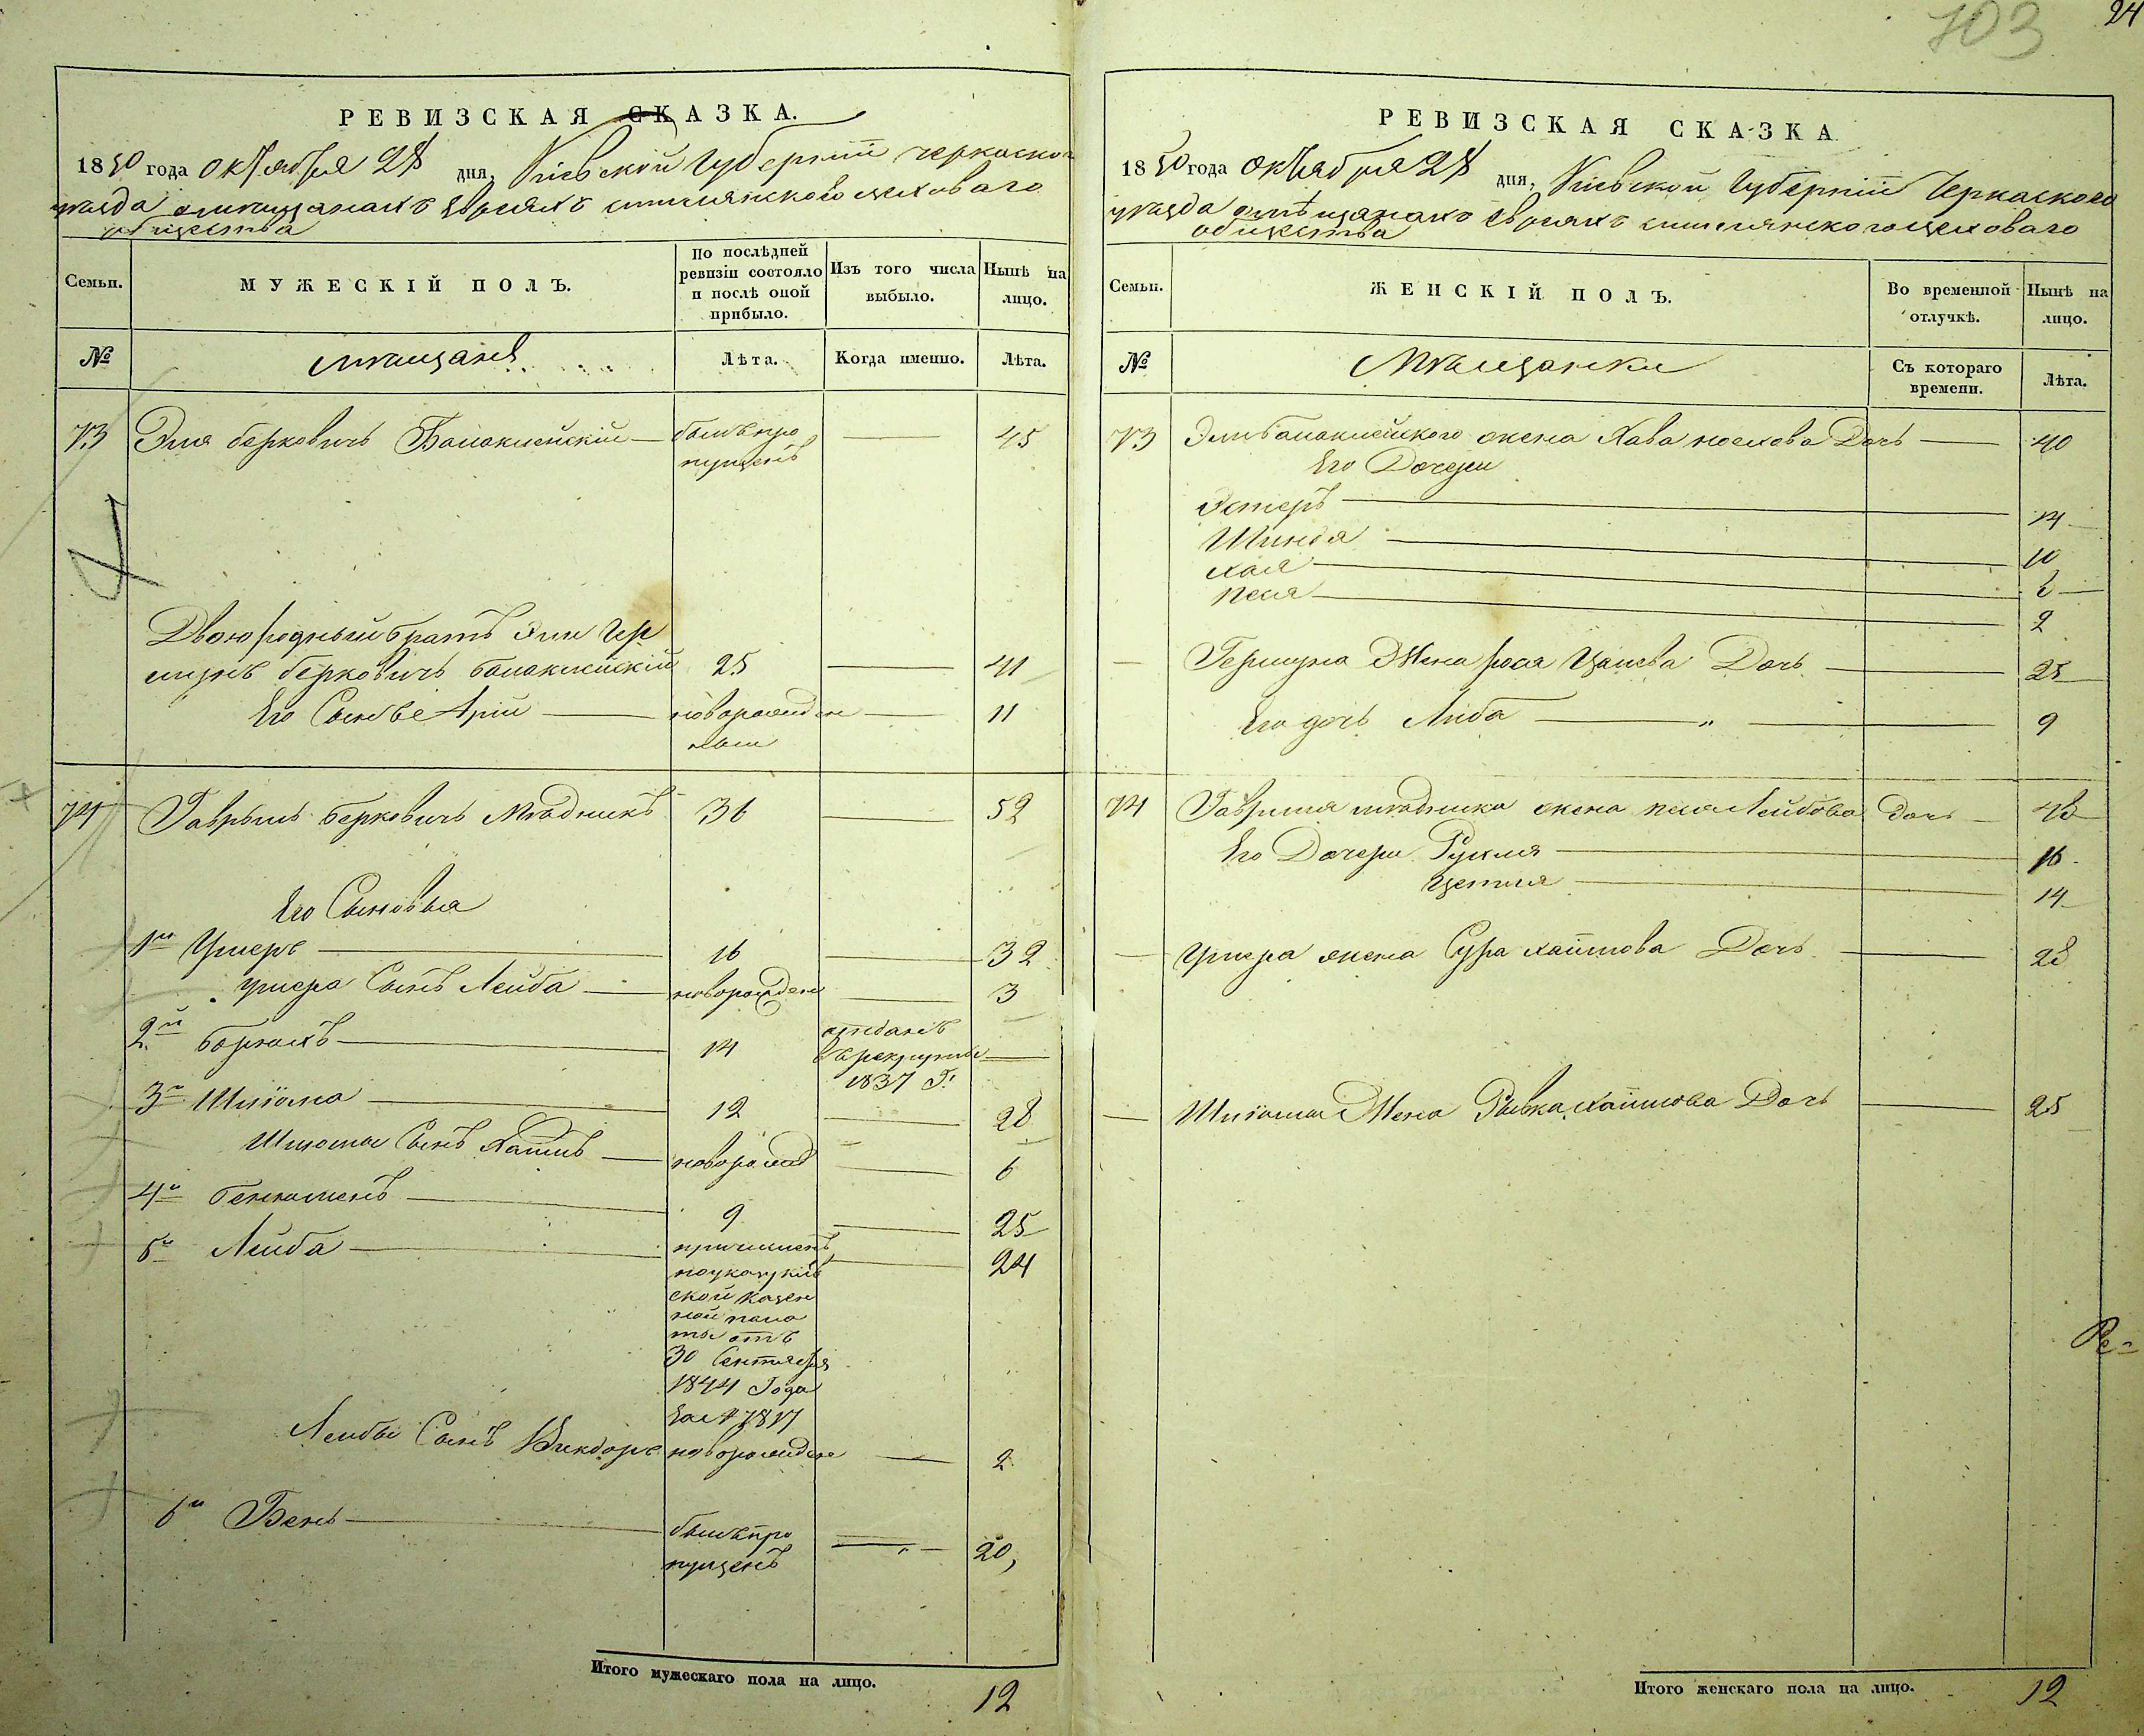 103
24
РЕВИЗСКАЯ СКАЗКА.
1850 года октября 28 дня, Кіевской Губерніи черкаског
уезда о мещанахъ Евреяхъ смилянского цехового
общества
Семьи.
МУЖЕСКІЙ ПОЛЪ.
По послѣдней ревизіи состояло и послѣ оной прибыло.
Изъ того числа выбыло.
Нынѣ на лицо.
№
мещане
Лѣта.
Когда именно.
Лѣта.
73 Эля берковичь Балаклейскій — былъ про — 45
пущенъ
Двоюродный братъ Эли Гер
берковичь балаклейскій 25 — 41
Его Сынъ — новорожден — 11
ный
74 Гаврыль берковичь Мѣдникъ 36 — 52
Его Сыновья
1й Ушеръ — 16 — 32
Ушера Сынъ Лейба — новорожден — 3
2й борухъ — 14 отданъ
въ рекруты —
1837 Г.
3й Шліома — 12 — 28
Шліомы Сынъ Хаимъ — новорожд — 6
4й — 9 — 25
5й Лейба — причисленъ — 24
по указу кіев
ской казен
ной пала
ты отъ
30 Сентября
1844 Года
за № 7817
Лейбы Сынъ новорожден — 2
6й Бень — былъ про — 20,
пущенъ
Итого мужескаго пола на лицо. 12
РЕВИЗСКАЯ СКАЗКА
1850 года октября 28 дня, Кіевской Губерніи Черкаского
уезда о мѣщанахъ Евреяхъ смилянского цехового
общества
Семьи.
ЖЕНСКІЙ ПОЛЪ.
Во временной отлучкѣ.
Нынѣ на лицо.
№
Мещанки
Съ котораго времени.
Лѣта.
73 Эли балаклейского жена Хава Дочь — 40
Его Дочери
Эстеръ — 14
Шинда — 10
хая — 6
песя — 2
— Гершуна Жена рося Дочь — 25
Его дочь Либа — „ — 9
74 Гаврыля мѣдника жена песя Лейбова Дочь —
Его Дочери Рухля — 16
Цетля — 14
— Ушера жена Сура хаимова Дочь — 28
— Шліомы Жена Рывка хаимова Дочь — 25
Ре=
Итого женскаго пола на лицо. 12